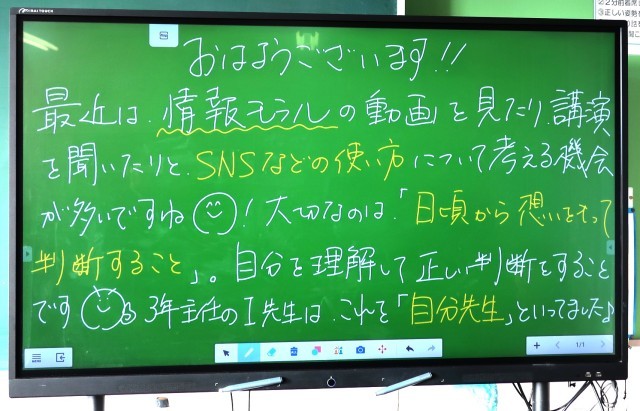 おはようございます!!
最近は、情報モラルの動画を見たり、講演
を聞いたりと、SNSなどの使い方について考える機会
が多いですね!大切なのは、「日頃から想いをもって
判断すること」。自分を理解して正しい判断をすること
です 3年主任のI先生は、これを「自分先生」といってました♪
1/1